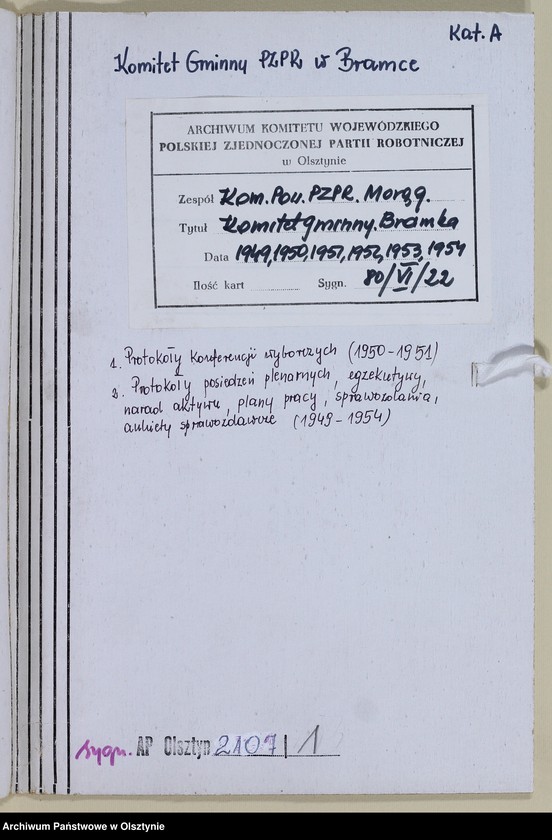 Kat. A
Komitet Gminny PZPR w Bramce
ARCHIWUM KOMITETU WOJEWÓDZKIEGO
POLSKIEJ ZJEDNOCZONEJ PARTII ROBOTNICZEJ
w Olsztynie
Zespół Kom. Pow. PZPR. Morąg.
Tytuł Komitet gminny. Bramka
Data 1949, 1950, 1951, 1952, 1953, 1954
Ilość kart Sygn. 80/VI/22
1. Protokoły Konferencji wyborczych (1950-1951)
2. Protokoły posiedzeń plenarnych, egzekutywy,
narad aktywu, plany pracy, sprawozdania,
ankiety sprawozdawcze (1949-1954)
sygn. AP Olsztyn 2107/1
Archiwum Państwowe w Olsztynie